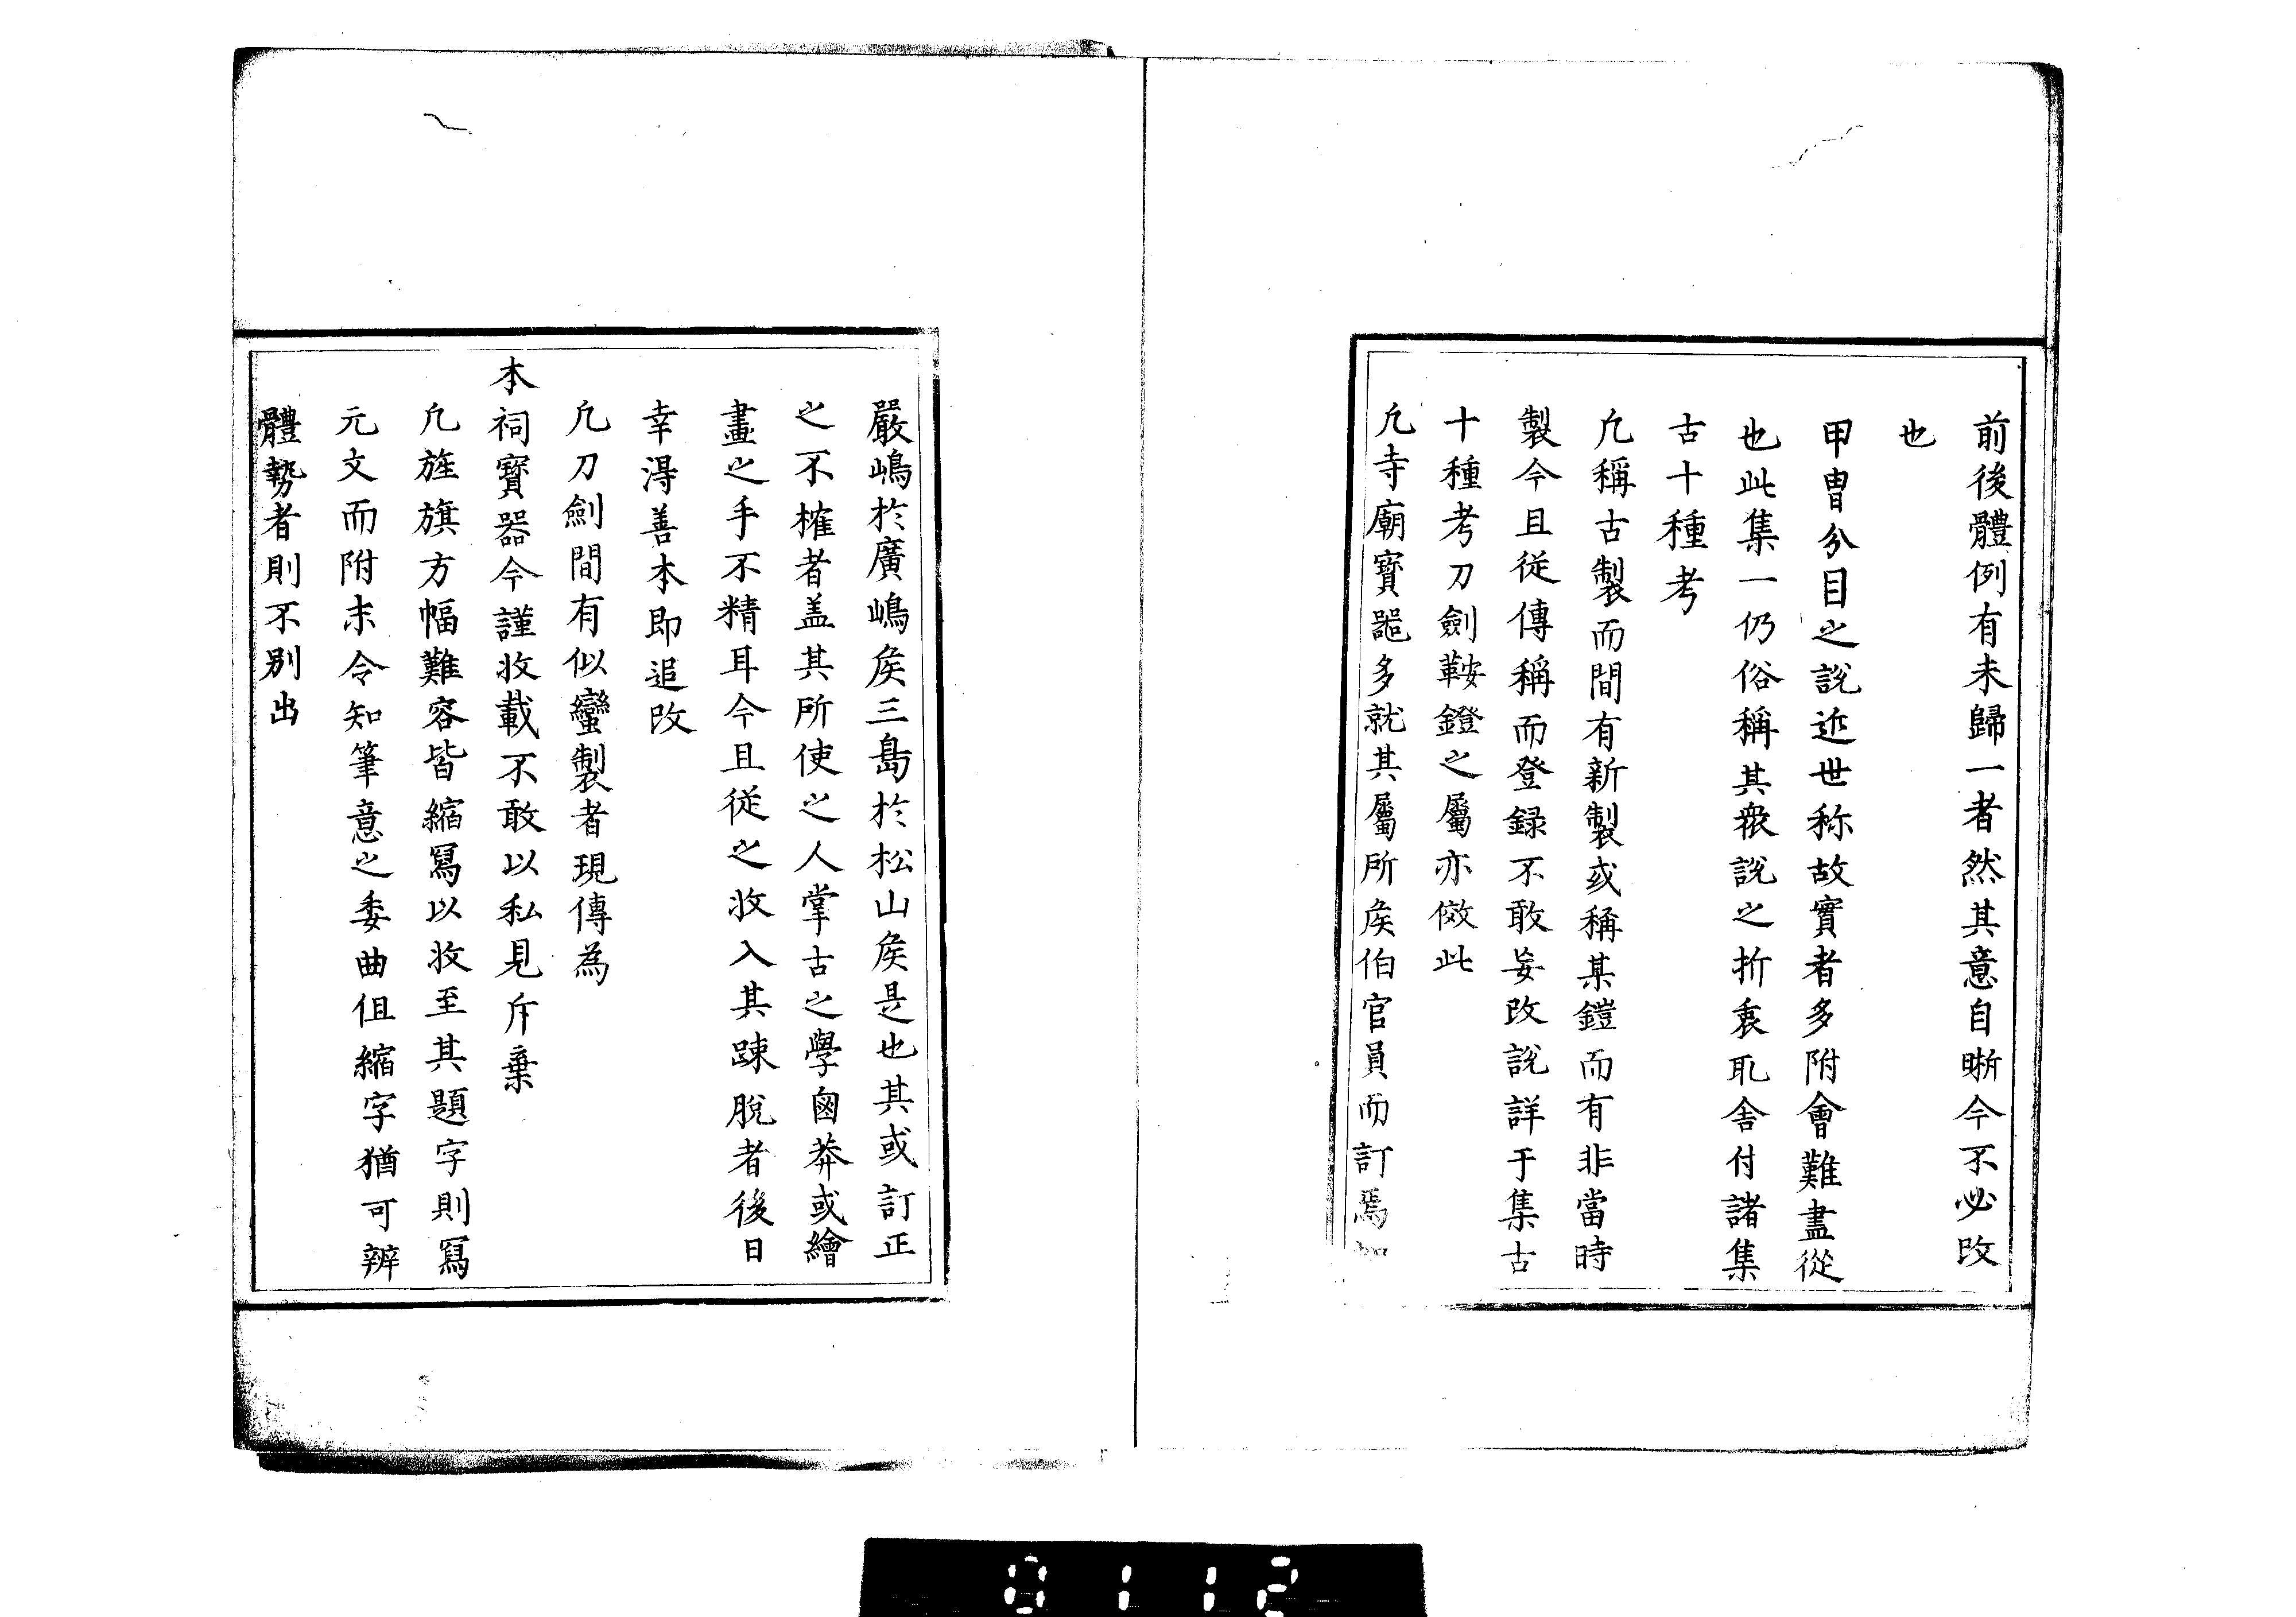 前後體例有未歸一者然其意自晰今不必改
也
甲冑分目之說近世称故實者多附會難盡從
也此集一仍俗稱其衆說之折衷取舎付諸集
古十種考
凢稱古製而間有新製或稱某鎧而有非當時
製今且從傳稱而登録不敢妄改說詳于集古
十種考刀劍鞍鐙之屬亦倣此
凢寺廟寶噐多就其屬所矦伯官員而訂焉如
嚴嶋於廣嶋矦三島於松山矦是也其或訂正
之不榷者盖其所使之人掌古之學鹵莽或繪
畫之手不精耳今且従之收入其踈脫者後日
幸淂善本即追改
凢刀劍間有似蠻製者現傳為
本祠寶器今謹收載不敢以私見斥棄
凢旌旗方幅難容皆縮冩以收至其題字則冩
元文而附末令知筆意之委曲但縮字猶可辨
體勢者則不別出
0112